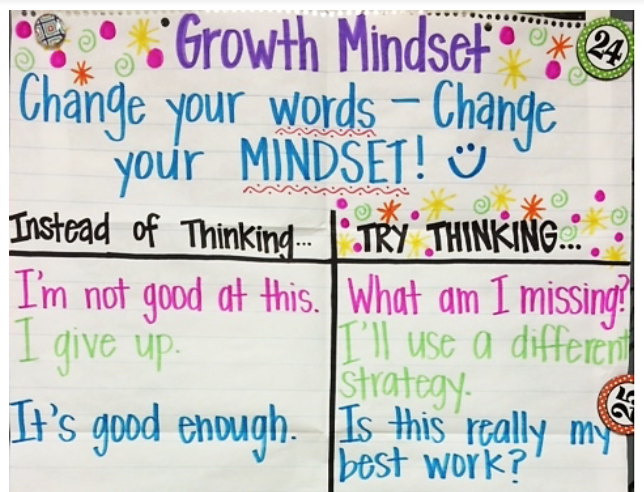 Growth Mindset
24
Change your words - Change
your MINDSET!
Instead of Thinking...
TRY THINKING...
I'm not good at this.
What am I missing?
I give up.
I'll use a different
strategy.
25
It's good enough.
Is this really my
best work?